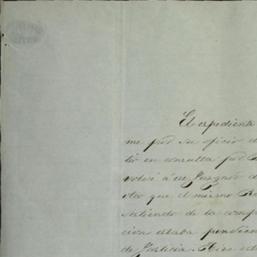 El expediente
me pasó su oficio d
ter en consulta por
volví á ese Juzgado d
oto que el mismo
saliendo de la comp
cion estaba pendien
de Justicia.